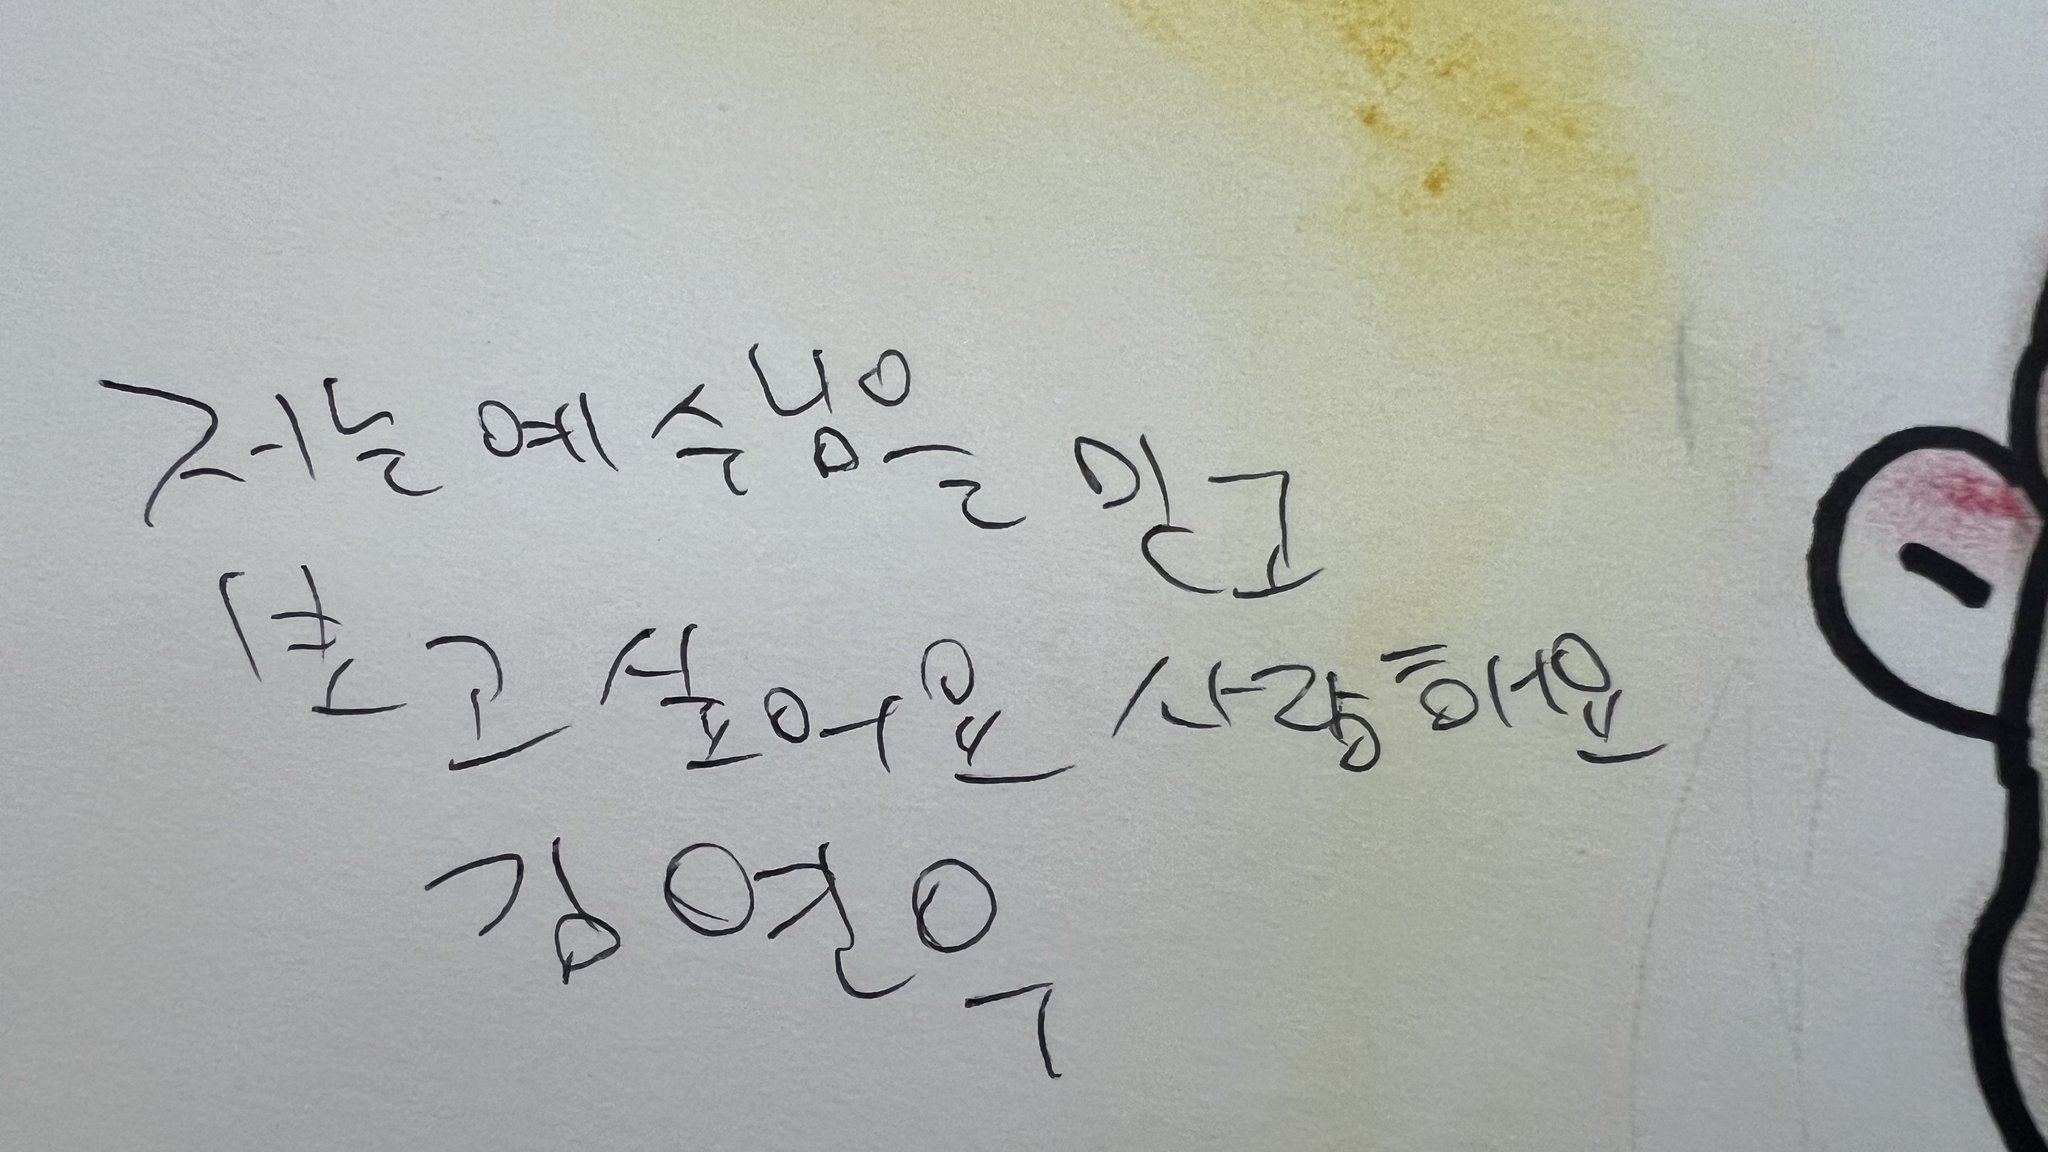 저는 예수님을 믿고
보고 싶어요 사랑해요